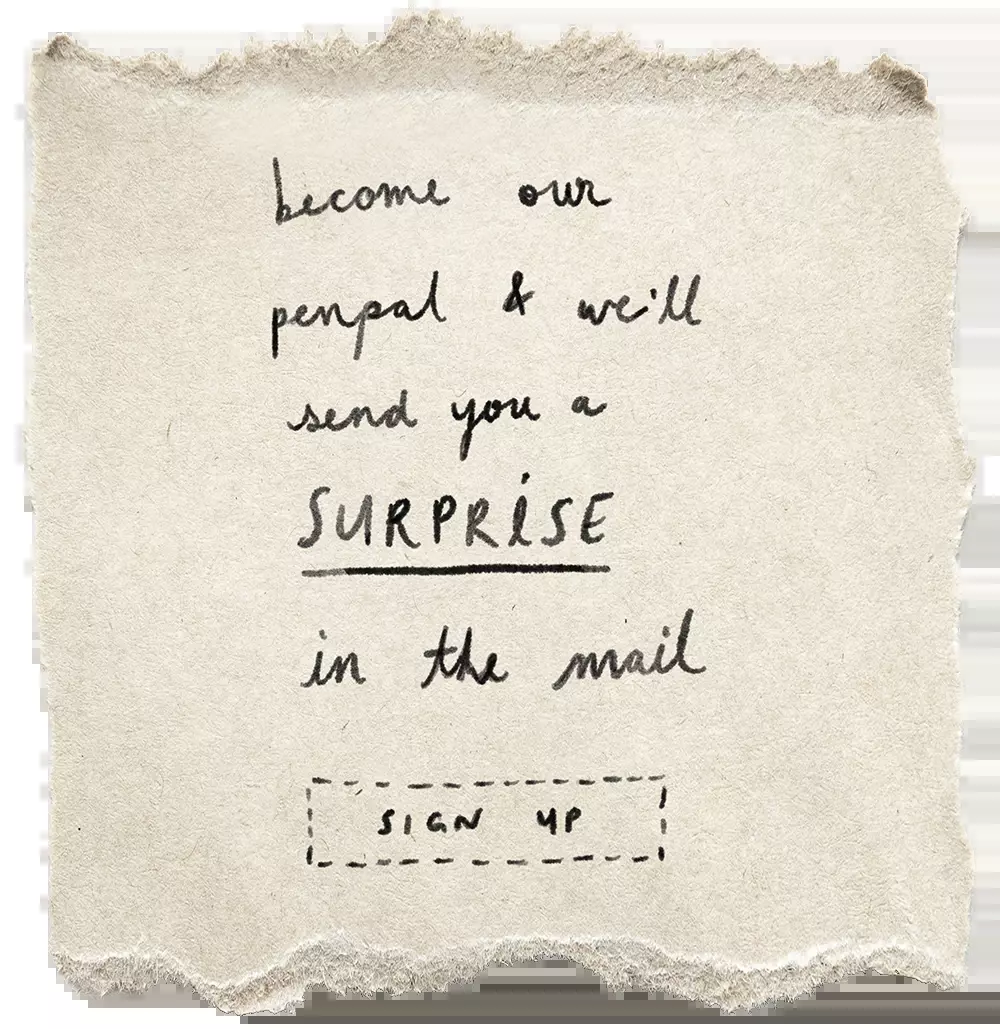 become our
penpal & we'll
send you a
SURPRiSE
in the mail
SIGN UP